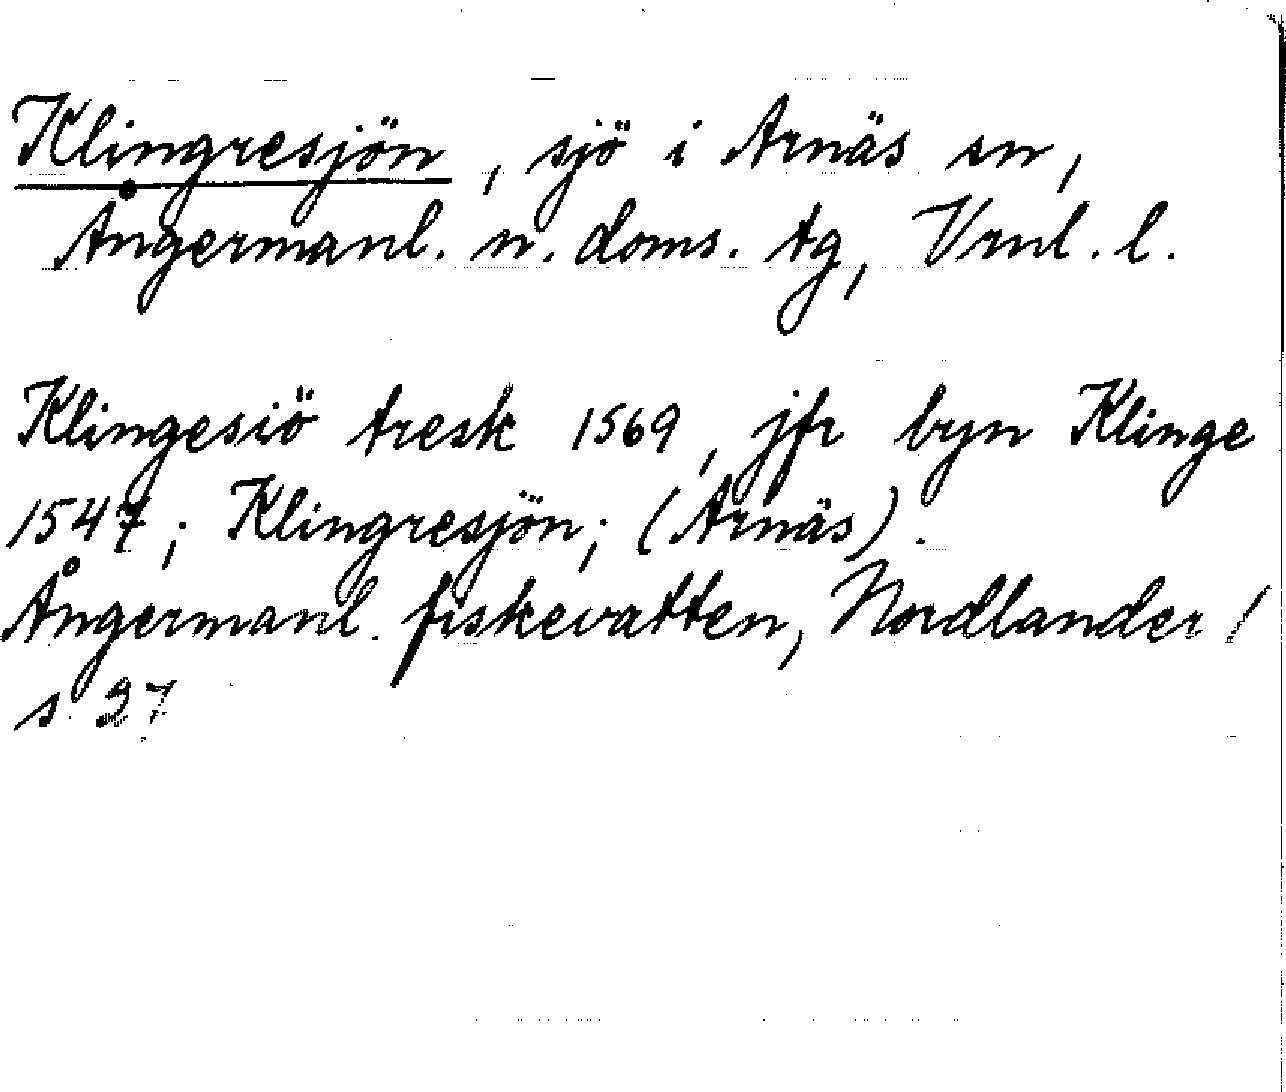 Klingresjön, sjö i Arnäs sn,
Ångermanl. n. doms. tg, Vrnl. l.
Klingesiö tresk 1569, jfr byn Klinge
1547; Klingresjön; (Arnäs).
Ångermanl. fiskevatten, Nordlander /
s 27